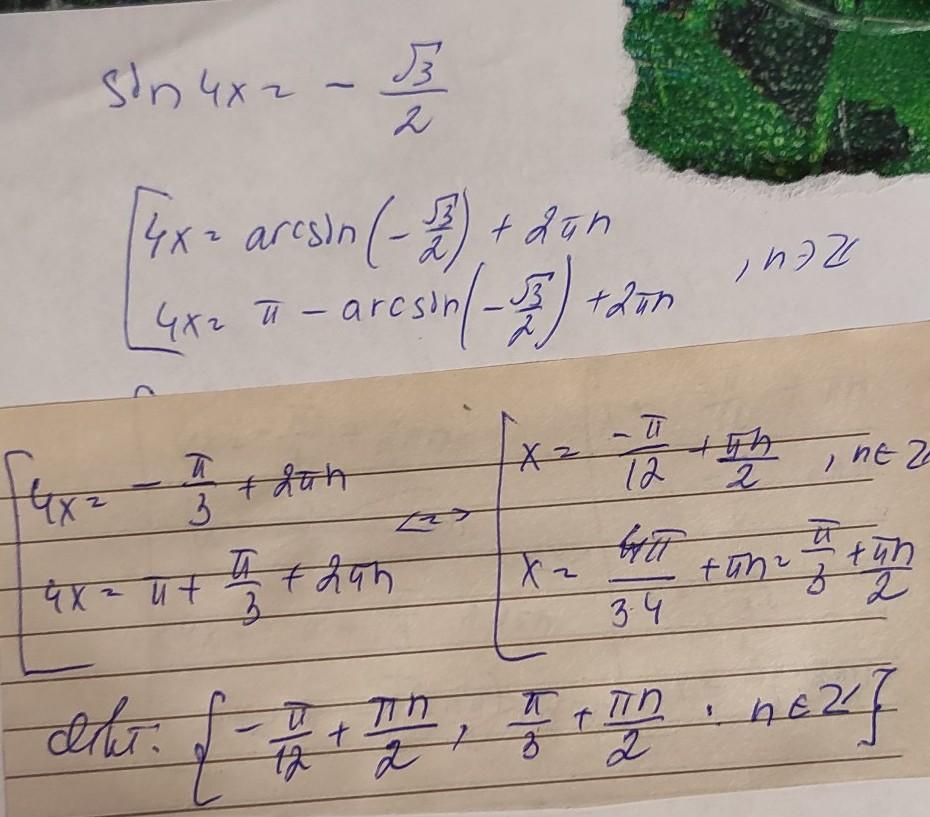 sin 4x = - √3/2
[ 4x = arcsin(-√3/2) + 2πn
4x = π - arcsin(-√3/2) + 2πn , n∋Z
[ 4x = - π/3 + 2πn
4x = π + π/3 + 2πn
<=>
[ x = -π/12 + πn/2 , n∈Z
x = 4π/3·4 + πn = π/3 + πn/2
Отв: { -π/12 + πn/2 , π/3 + πn/2 . n∈Z }